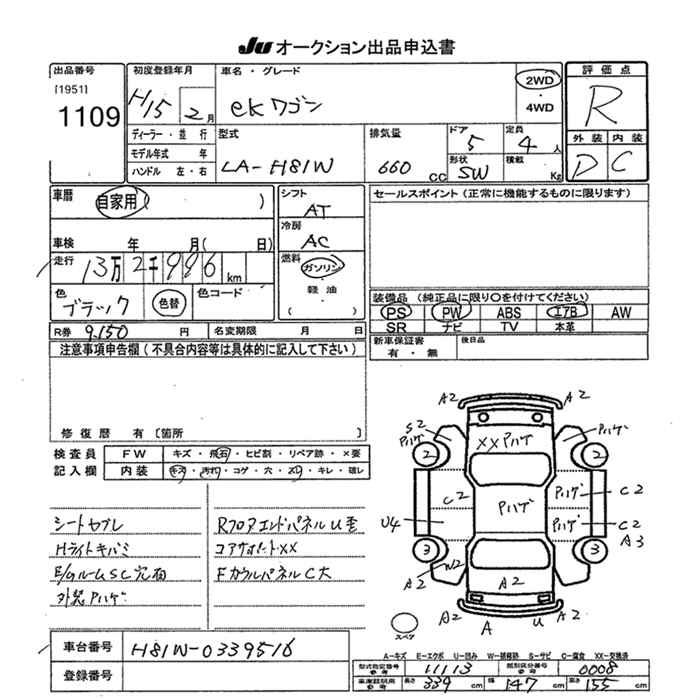 JU オークション出品申込書
出品番号
[1951]
1109
初度登録年月
H15 年 2月
車名・グレード
ekワゴン
2WD
・
4WD
評価点
R
外装 内装
D C
ディーラー・並行
モデル年式 年
ハンドル 左・右
型式
LA-H81W
排気量
660 cc
ドア
5
定員
4 人
形状
SW
積載
Kg
車歴
自家用( )
車検 年 月( 日)
走行 13万2千996 km
色
ブラック
色替
色コード
シフト
AT
冷房
AC
燃料
ガソリン
軽油
( )
セールスポイント(正常に機能するものに限ります)
装備品(純正品に限り〇を付けてください)
PS PW ABS エアB AW
SR ナビ TV 本革
R券 9,150 円
名変期限 月 日
新車保証書
有・無
後日品
注意事項申告欄(不具合内容等は具体的に記入して下さい)
修復歴 有 〔箇所
検査員
記入欄
FW キズ・飛石・ヒビ割・リペア跡・×要
内装 キズ・汚れ・コゲ・穴・スレ・キレ・破レ
シートセブレ
Hライトキバミ
E/gルームSC完歯
外装Pハゲ
RフロアエンドパネルU歪
コアサポートXX
FカウルパネルC大
A2 A2
S2
Pハゲ
XXPハゲ
Pハゲ
2 2
C2
Pハゲ
Pハゲ
C2
U4
Pハゲ
C2
A3
3 3
W2
A2
A2
A2
A2
A
U
スペア
A-キズ E-エクボ U-凹み W-補修跡 S-サビ C-腐食 XX-交換済
車台番号 H81W-0339516
登録番号
型式指定番号
参考
11113
類別区分番号
参考
0008
車庫証明用
参考
長さ 339 cm 幅 147 cm 高さ 155 cm